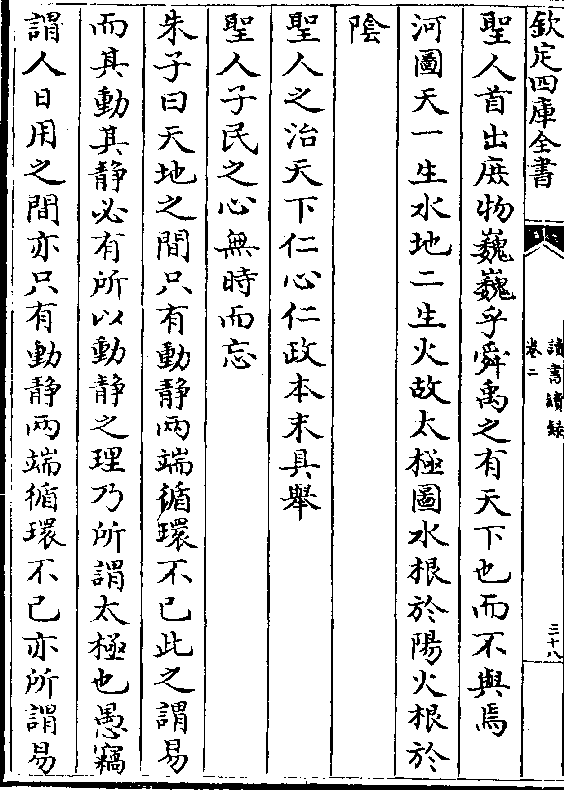 欽定四庫全書
讀書續錄
卷二
三十八
聖人首出庶物巍巍乎舜禹之有天下也而不與焉
河圖天一生水地二生火故太極圖水根於陽火根於
陰
聖人之治天下仁心仁政本末具舉
聖人子民之心無時而忘
朱子曰天地之間只有動静兩端循環不已此之謂易
而其動其静必有所以動静之理乃所謂太極也愚竊
謂人日用之間亦只有動静兩端循環不已亦所謂易